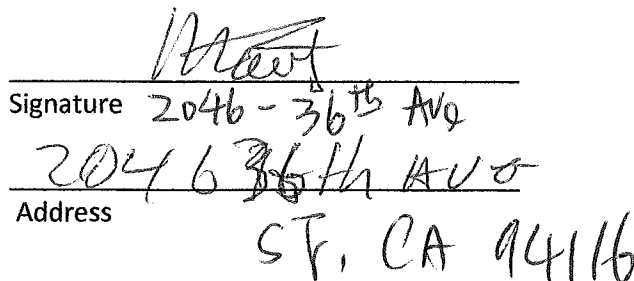 Signature 2046-36th Ave
2046 36th Ave
Address
SF, CA 94116